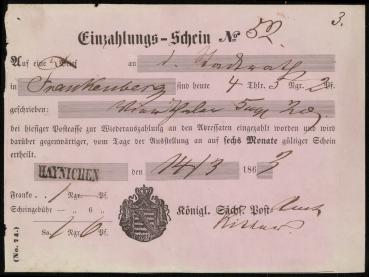 3.
Einzahlungs-Schein № 52.
Auf eine Brief an d. Stadtrath
in Frankenberg sind heute 4 Thlr. 3 Ngr. 2 Pf.
geschrieben: Vier Thaler
bei hiesiger Postcasse zur Wiederauszahlung an den Adressaten eingezahlt worden und wird
darüber gegenwärtiger, vom Tage der Ausstellung an auf sechs Monate gültiger Schein
ertheilt.
HAYNICHEN den 14/3 1862
Franko 1 Ngr. – Pf.
Scheingebühr – „ 6 „
Sa. 1 6
Königl. Sächs. Post Amt
(No. 74.)